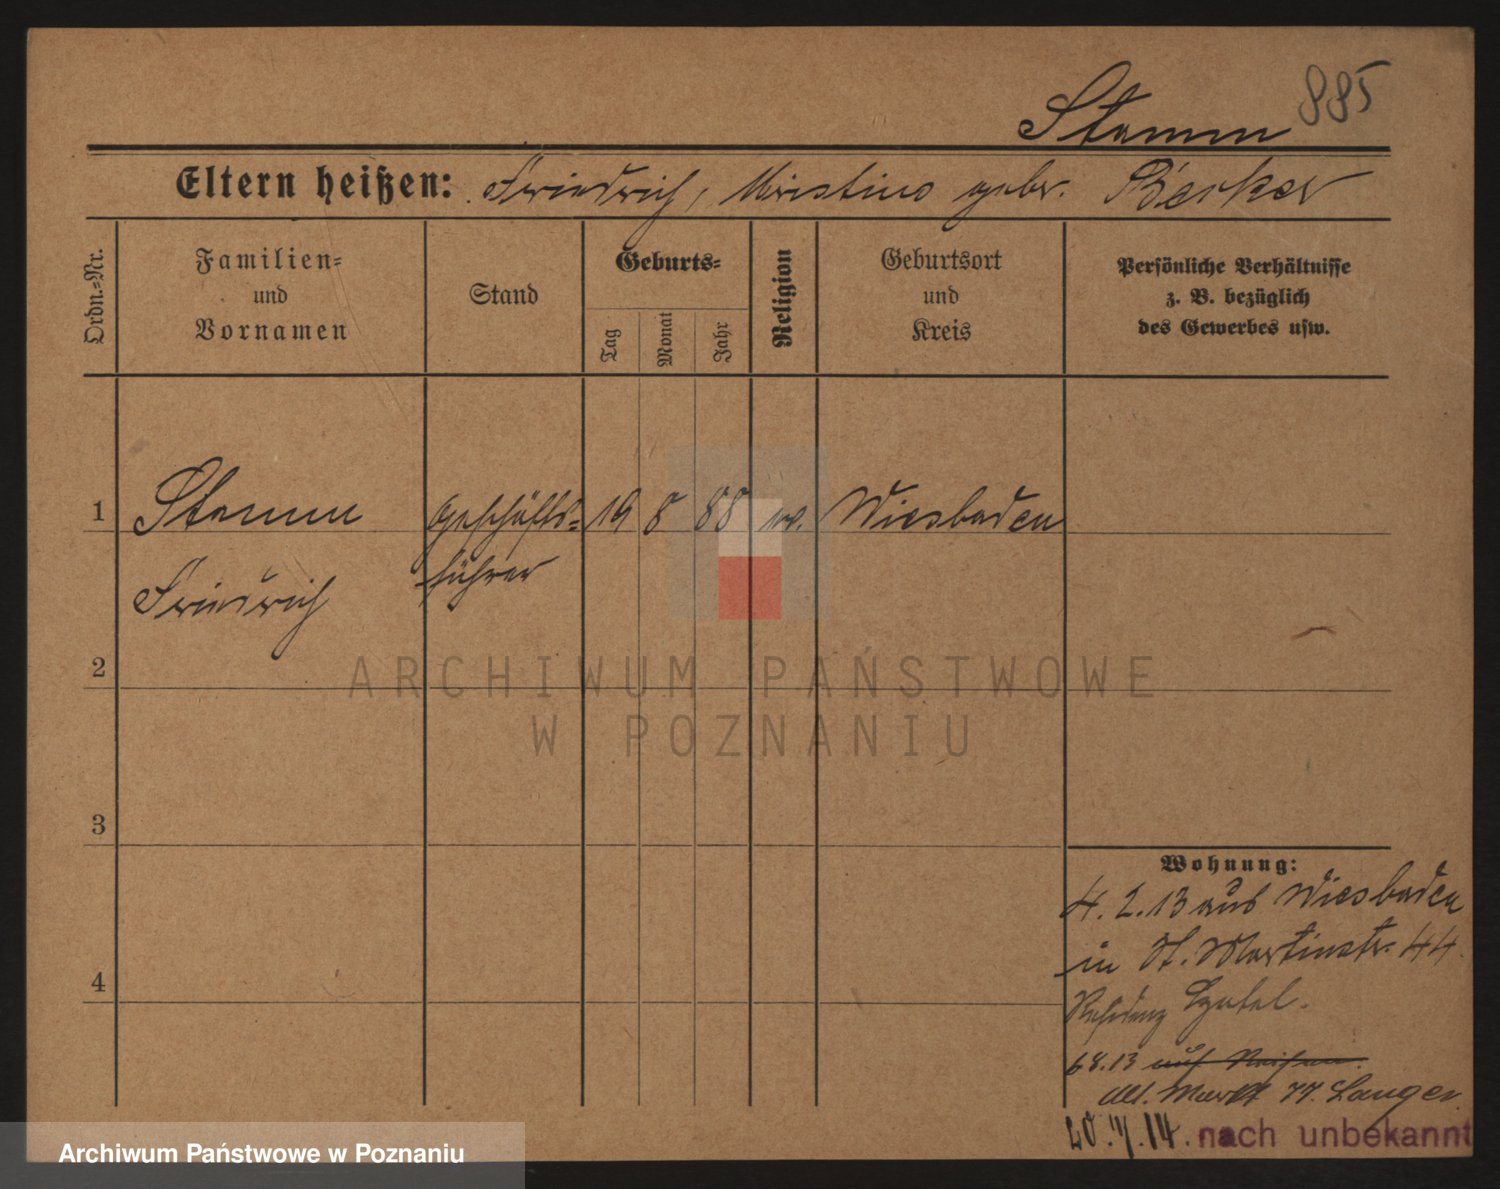 885
Stamm
Eltern heißen: Friedrich, Christine gebr. Becker
Ordn.-Nr.
Familien-
und
Vornamen
Stand
Geburts-
Tag
Monat
Jahr
Religion
Geburtsort
und
Kreis
Persönliche Verhältnisse
z. B. bezüglich
des Gewerbes usw.
1
Stamm
Friedrich
Geschäfts-
führer
19 8 88
Wiesbaden
2
3
4
ARCHIWUM PAŃSTWOWE
W POZNANIU
Wohnung:
4. 2. 13 aus Wiesbaden
in St. Martinstr. 44.
Residenz Hotel.
6 8. 13 auf Reisen.
Alt. Markt 77. Langer
20. 4. 14. nach unbekannt
Archiwum Państwowe w Poznaniu